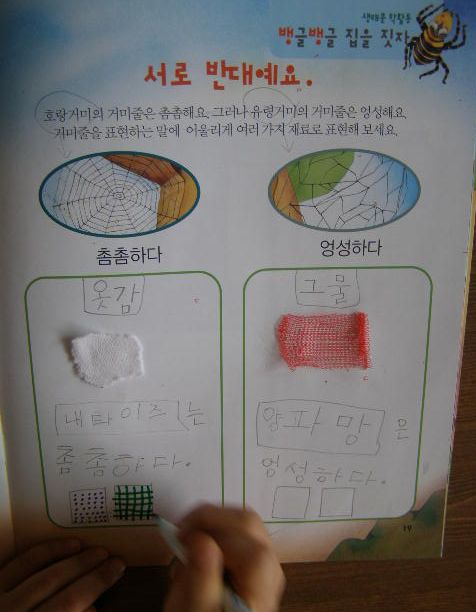 생태문학활동
뱅글뱅글 집을 짓자
서로 반대예요.
호랑거미의 거미줄은 촘촘해요. 그러나 유령거미의 거미줄은 엉성해요.
거미줄을 표현하는 말에 어울리게 여러 가지 재료로 표현해 보세요.
촘촘하다
엉성하다
옷감
그물
내타이즈는
촘촘하다.
양파망은
엉성하다.
19